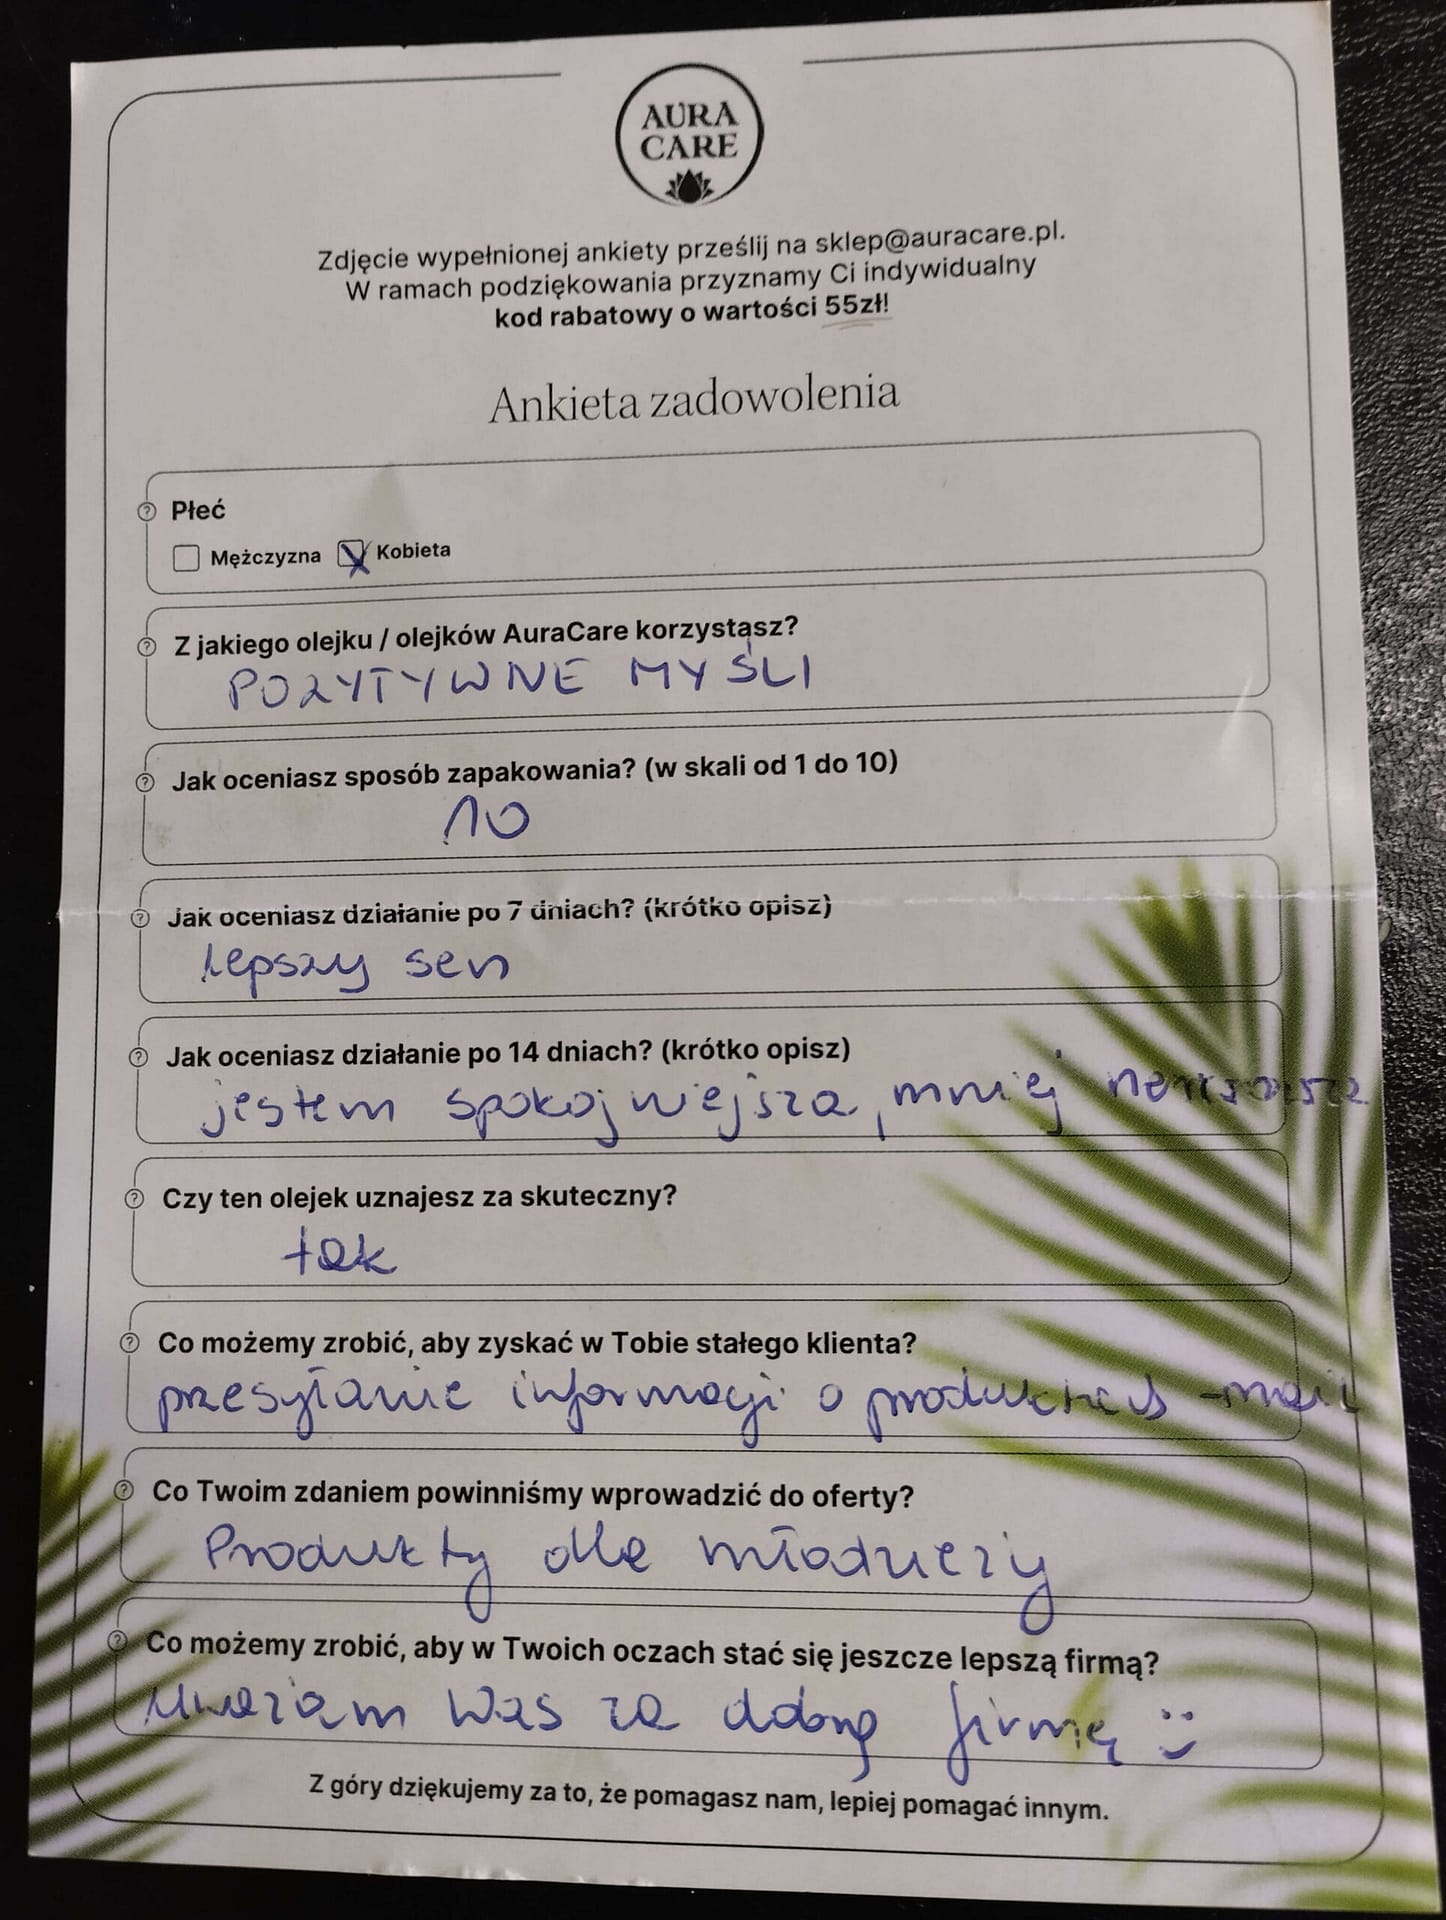 AURA
CARE
Zdjęcie wypełnionej ankiety prześlij na sklep@auracare.pl.
W ramach podziękowania przyznamy Ci indywidualny
kod rabatowy o wartości 55zł!
Ankieta zadowolenia
Płeć
Mężczyzna Kobieta
Z jakiego olejku / olejków AuraCare korzystasz?
POZYTYWNE MYŚLI
Jak oceniasz sposób zapakowania? (w skali od 1 do 10)
10
Jak oceniasz działanie po 7 dniach? (krótko opisz)
lepszy sen
Jak oceniasz działanie po 14 dniach? (krótko opisz)
jestem spokojniejsza, mniej
Czy ten olejek uznajesz za skuteczny?
tak
Co możemy zrobić, aby zyskać w Tobie stałego klienta?
przesyłanie informacji o produktach - mail
Co Twoim zdaniem powinniśmy wprowadzić do oferty?
Produkty dla młodzieży
Co możemy zrobić, aby w Twoich oczach stać się jeszcze lepszą firmą?
Uważam Was za dobrą firmę :)
Z góry dziękujemy za to, że pomagasz nam, lepiej pomagać innym.